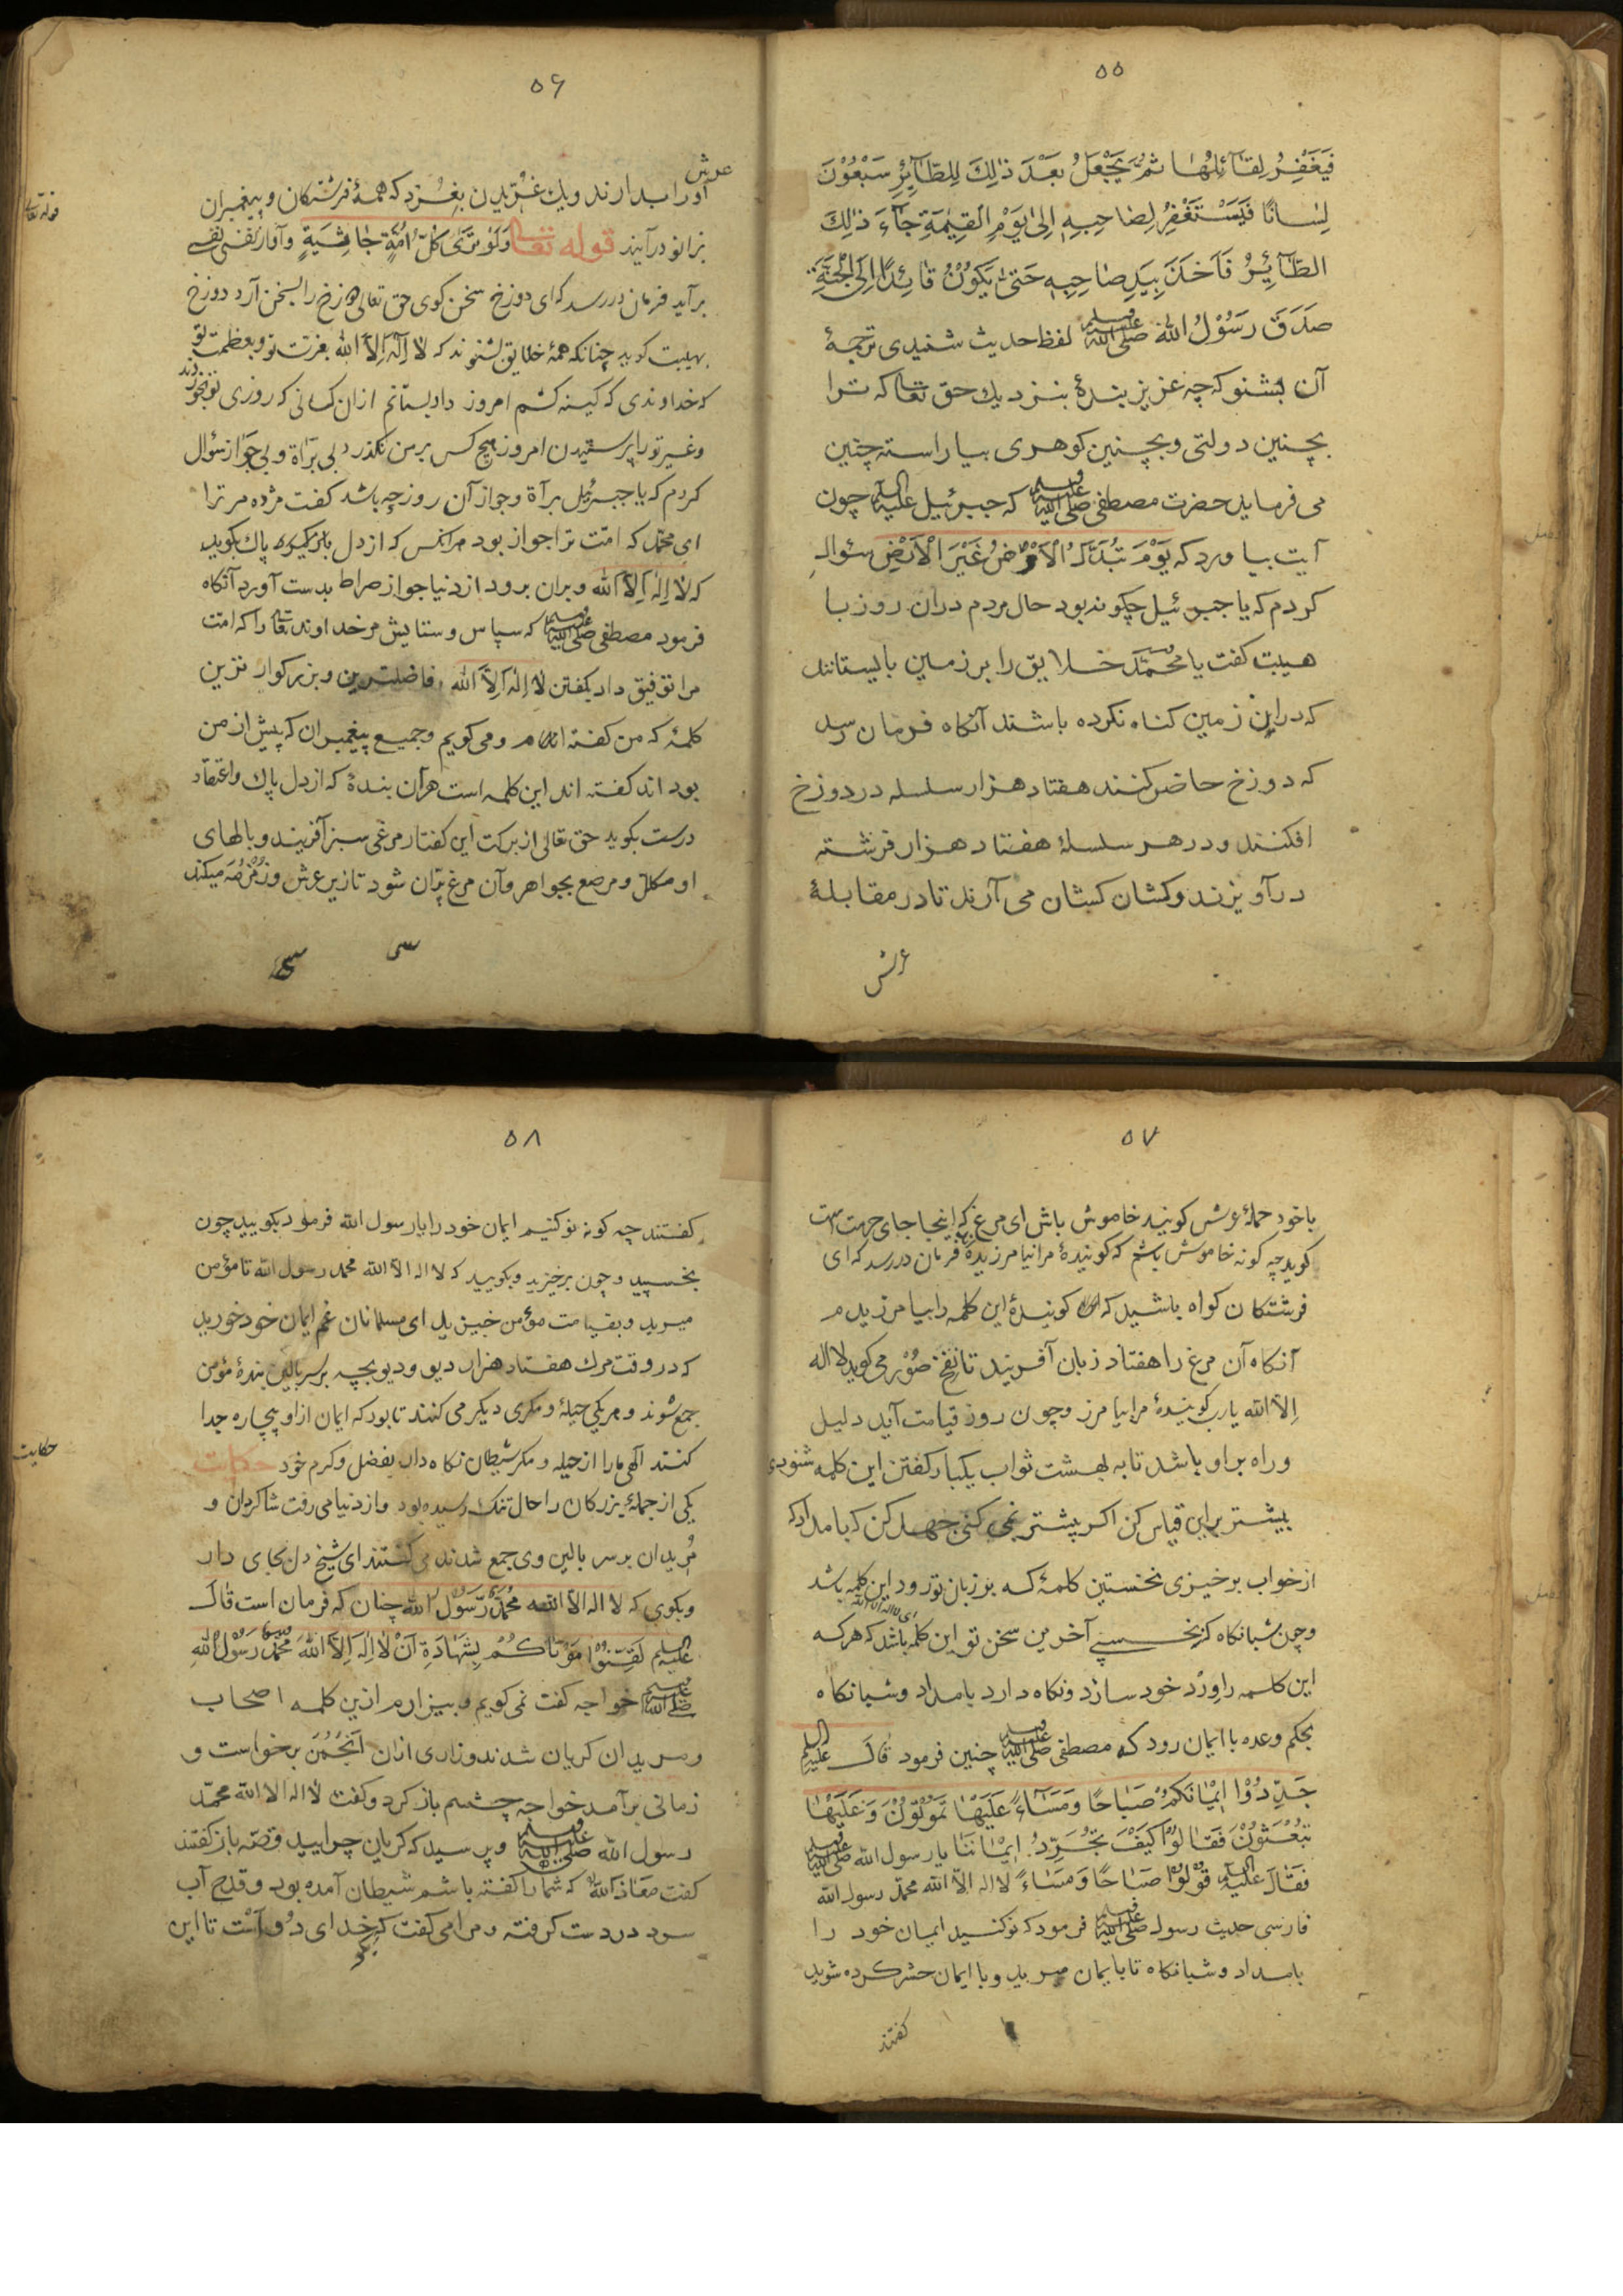 ۵۵
فَيَغْفِرُ لِقَائِلِهَا ثُمَّ يَجْعَلُ بَعْدَ ذٰلِكَ لِلطَّآئِرِ سَبْعُوْنَ
لِسَانًا فَيَسْتَغْفِرُ لِصَاحِبِهٖ اِلىٰ يَوْمِ الْقِيٰمَةِ جَآءَ ذٰلِكَ
الطَّآئِرُ فَاَخَذَ بِيَدِ صَاحِبِهٖ حَتىٰ يَكُوْنُ قَائِدًا اِلَى الْجَنَّةِ
صَدَقَ رَسُوْلُ اللّٰهِ صلى الله عليه وسلم لفظ حدیث شنیدی ترجمهٔ
آن بشنو که چه عزیز بندهٔ بنزدیك حق تعا که ترا
بچنین دولتی وبچنین کوهری بیاراسته چنین
می فرماید حضرت مصطفی صلى الله عليه وسلم که جبرئیل علیه السلم چون
آیت بیاورد که يَوْمَ تُبَدَّلُ الْاَرْضُ غَيْرَ الْاَرْضِ سئوال
کردم که یا جبرئیل چکونه بود حال مردم دران روز با
هیبت کفت یا محمّد خلایق را بر زمین بایستانند
که دراین زمین کناه نکرده باشند آنکاه فرمان رسد
که دوزخ حاضر کنند هفتاد هزار سلسله در دوزخ
افکنند ودر هر سلسلهٔ هفتاد هزار فرشته
در آویزند وکشان کشان می آرند تا در مقابلهٔ
عرش
۵۶
عرش
اورا بدارند ویك غُرّیدن بغُرّد که همهٔ فرشتکان وپیغمبران
بزانو درآیند قوله تعا وَتَرىٰ كُلَّ اُمَّةٍ جَاثِيَةٍ وآواز نفسی نفسی
قوله تعالی
برآید فرمان در رسد که ای دوزخ سخن کوی حق تعالی دوزخ را بسخن آرد دوزخ
بهیبت کوید چنانکه همهٔ خلایق بشنوند که لَا اِلٰهَ اِلَّا اللّٰه بعزت تو وبعظمت تو
که خداوندی که کینه کشم امروز داد بستانم ازان کسانی که روزی تو بخوردند
وغیر تو را پرستیدن امروز هیچ کس بر من نکذرد بی براة وبی جواز سؤال
کردم که یا جبرئیل برآة وجواز آن روز چه باشد کفت مژده مر ترا
ای محمّد که امّت ترا جواز بود هر انکس که از دل پاک بکوید
که لَا اِلٰهَ اِلَّا اللّٰه وبران برود از دنیا جواز صراط بدست آورد آنکاه
فرمود مصطفی صلى الله عليه وسلم که سپاس وستایش مر خداوند تعا را که امّت
مرا توفیق داد بکفتن لَا اِلٰهَ اِلَّا اللّٰه فاضلترین وبزرکوارترین
کلمهٔ که من کفته ام ومی کویم وجمیع پیغمبران که پیش از من
بوده اند کفته اند این کلمه است هر آن بندهٔ که از دل پاك واعتقاد
درست بکوید حق تعالی از برکت این کفتار مرغی سبز آفریند وبالهای
او مکلل ومرصع بجواهر وآن مرغ پرّان شود تا زیر عرش وزمزمه میکند
۵۷
باخود حملهٔ عرش کویند خاموش باش ای مرغ که اینجا جای حرمت است
کوید چه کونه خاموش باشم که کویندهٔ مرا نیامرزیدهٔ فرمان در رسد که ای
فرشتکان کواه باشید که کویندهٔ این کلمه را بیامرزیدم
آنکاه آن مرغ را هفتاد زبان آفریند تا نفخ صُوْر می کوید لا اله
اِلّا الله یارب کویندهٔ مرا بیامرز وچون روز قیامت آید دلیل
وراه بر او باشد تا به بهشت ثواب یکبار کفتن این کلمه شنودی
بیشتر براین قیاس کن اکر بیشتر نمی کنی جهد کن که بامداد که
از خواب برخیزی نخستین کلمهٔ که بر زبان تو رود این کلمه باشد
ای لا اله الا الله
وچون شبانکاه که بخسپی آخرین سخن تو این کلمه باشد که هرکه
این کلمه را وِرْد خود سازد ونکاه دارد بامداد وشبانکاه
بحکم وعده با ایمان رود که مصطفی صلى الله عليه وسلم چنین فرمود قَالَ علیه السلم
جَدِّدُوْا اِيْمَانَكُمْ صَبَاحًا وَمَسَآءً عَلَيْهَا تَمُوْتُوْنَ وَعَلَيْهَا
تُبْعَثُوْنَ فَقَالُوْا كَيْفَ نُجَدِّدُ اِيْمَانَنَا يا رسول الله صلى الله عليه وسلم
فَقَالَ عَلَيْهِ السلم قُوْلُوْا صَبَاحًا وَمَسَاءً لا اله الّا الله محمّد رسول الله
فارسی حدیث رسول صلى الله عليه وسلم فرمود که نو کنید ایمان خود را
بامداد وشبانکاه تا با ایمان میرید وبا ایمان حشر کرده شوید
کفتند
۵۸
کفتند چه کونه نو کنیم ایمان خود را یا رسول الله فرمود بکویید چون
بخسپید وچون برخیزید وبکویید که لا اله الا الله محمد رسول الله تا مؤمن
میرید وبقیامت مؤمن خیزید ای مسلمانان غم ایمان خود خورید
که در وقت مرك هفتاد هزار دیو ودیو بچه بر سر بالین بندهٔ مؤمن
جمع شوند وهر یکی حیلهٔ ومکری دیکر می کنند تا بود که ایمان از او بیچاره جدا
کنند الٰهی ما را از حیله ومکر شیطان نکاه دار بفضل وکرم خود حکایت
حکایت
یکی از جملهٔ بزرکان را حال تنك رسیده بود واز دنیا می رفت شاکردان و
مُریدان بر سر بالین وی جمع شدند می کفتند ای شیخ دل بجای دار
وبکوی که لا اله الا الله مُحَمَّدٌ رَسُوْلُ الله چنان که فرمان است قَالَ
علیه السلم لَقِّنُوْا مَوْتَاكُمْ بِشَهَادَةِ اَنْ لَا اِلٰهَ اِلَّا اللّٰهَ مُحَمَّدٌ رَسُوْلُ اللّٰهِ
صلى الله عليه وسلم خواجه کفت نمی کویم وبیزارم ازین کلمه اصحاب
ومریدان کریان شدند وزاری ازان اَنْجُمَن برخواست و
زمانی برآمد خواجه چشم باز کرد وکفت لا اله الا الله محمّد
رسول الله صلى الله عليه وسلم وپرسید که کریان چرایید قصّه باز کفتند
کفت مَعَاذَ اللّٰه که شما را کفته باشم شیطان آمده بود وقدح آب
سرد در دست کرفته ومرا می کفت که بکو خدای دُو است تا این